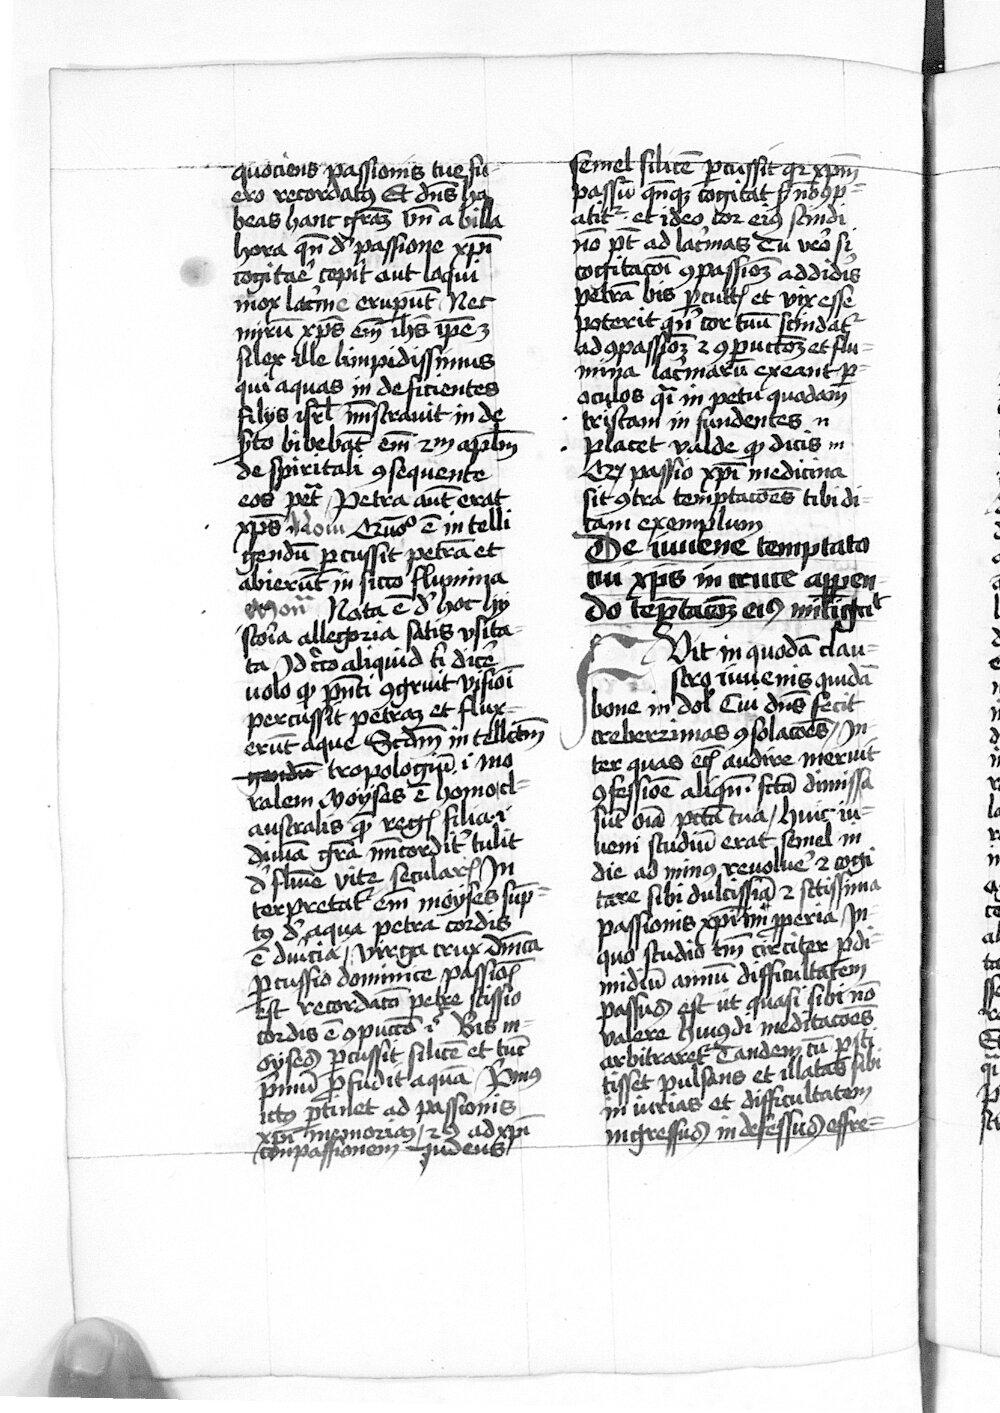 quociens passionis tue fu-
ero recordatꝰ Et dn̄s ha
beas hanc gr̄aꝫ Vn̄ a billa
hora qn̄ d' passione xp̄i
cogitae' cepit aut laqui
mox lac'me eruꝑunt Nec
mirū xp̄s em̄ ih̄s ip̄e ꝫ
silex ille limpidissimus
qui aquas in deficientes
filijs isrl̄ mi̅strauit in de
s'to bibebāt em̄
de spiritali ꝯsequente
eos petͣ Petra aut̄ erat
xp̄s Nouic' Quōº ē in telli
gendū ꝑcussit petrā et
abierūt in sicco flumina
Mon' Nota ē d' hoc hy
stor̄ia allegoria satis vsita-
ta Id c̄co aliquid t' dic'e
uolo qꝫ pn̄ti ꝯgruit visioī
percussit petraꝫ et flux-
erūt aque Scdm̄ in tellc̄m
tropologiū i mo
ralem Moyses ē homo cl-
australis qꝫ reg' filia i
diuīa gr̄a mi̅corditͬ tulit
d' flūie vite secularꝭ In
terpretatͬ em̄ moyses sūp-
tꝰ d' aqua petra cordis
ē duricia Virga crux dn̄ica
ꝑcussio dominice passionꝭ
Est recordac̄o petre scissio
cordis ē ꝯpucc̄o Bis m-
oyses ꝑcussit silicē et tūc
pͥmū ꝓfudit aquā Pͥmꝰ
ictꝰ ꝑtinet ad passionis
xp̄i memoriaꝫ 2ꝰ ad xp̄i
conpassionem
semel silicē ꝑcussit qꝛ xp̄m
passū qn̄qꝫ cogitat s' nō ꝯp-
atitͬ et ideo cor eiꝰ scindi
nō pt̄ ad lac'mas Tu ver̄o si
cogitac̄oi ꝯpassioꝫ addid'is
petrā bis ꝑcutꝭ et vix esse
poterit qn̄ cor tuū scindatͬ
ad ꝯpassioꝫ ⁊ ꝯpucc̄oꝫ et flu-
mina lac'marū exeant ꝑ-
oculos qͥ in petͣ quodam
tristam in fundentes n
Placet valde qꝫ dicis m
Qꝫ passio xp̄i medicina
sit ꝯtra temptac̄oēs tibi di-
cam exemplum
De iuuene temptato
cui xp̄s in cruce appen-
do tēptac̄oꝫ eiꝰ mitigat
Fvit in quodā clau-
stro iuuenis quidā
bone in dol' Cui dn̄s fecit
creberrimas ꝯsolac̄oēs In-
ter quas et̄ audire meruit
ꝯfessiōe aliqn̄ fctā dimissa
sūt oīa pctā tua Huic iu-
ueni studiū erat semel in
die ad minꝰ reuolue' ⁊ cogi
tare sibi dulcissīa ⁊ sctissima
passionis xp̄i In-
quo studio tn̄ circiter ꝑ di-
midiū annū difficultatem
passus est ut quasi sibi nō
valere huiꝰdi meditac̄oēs
arbitraretͬ Tandem cū ꝑsti
tisset pulsans et illatas sibi
in iurias et difficultatem
ingressus in defessus effre-